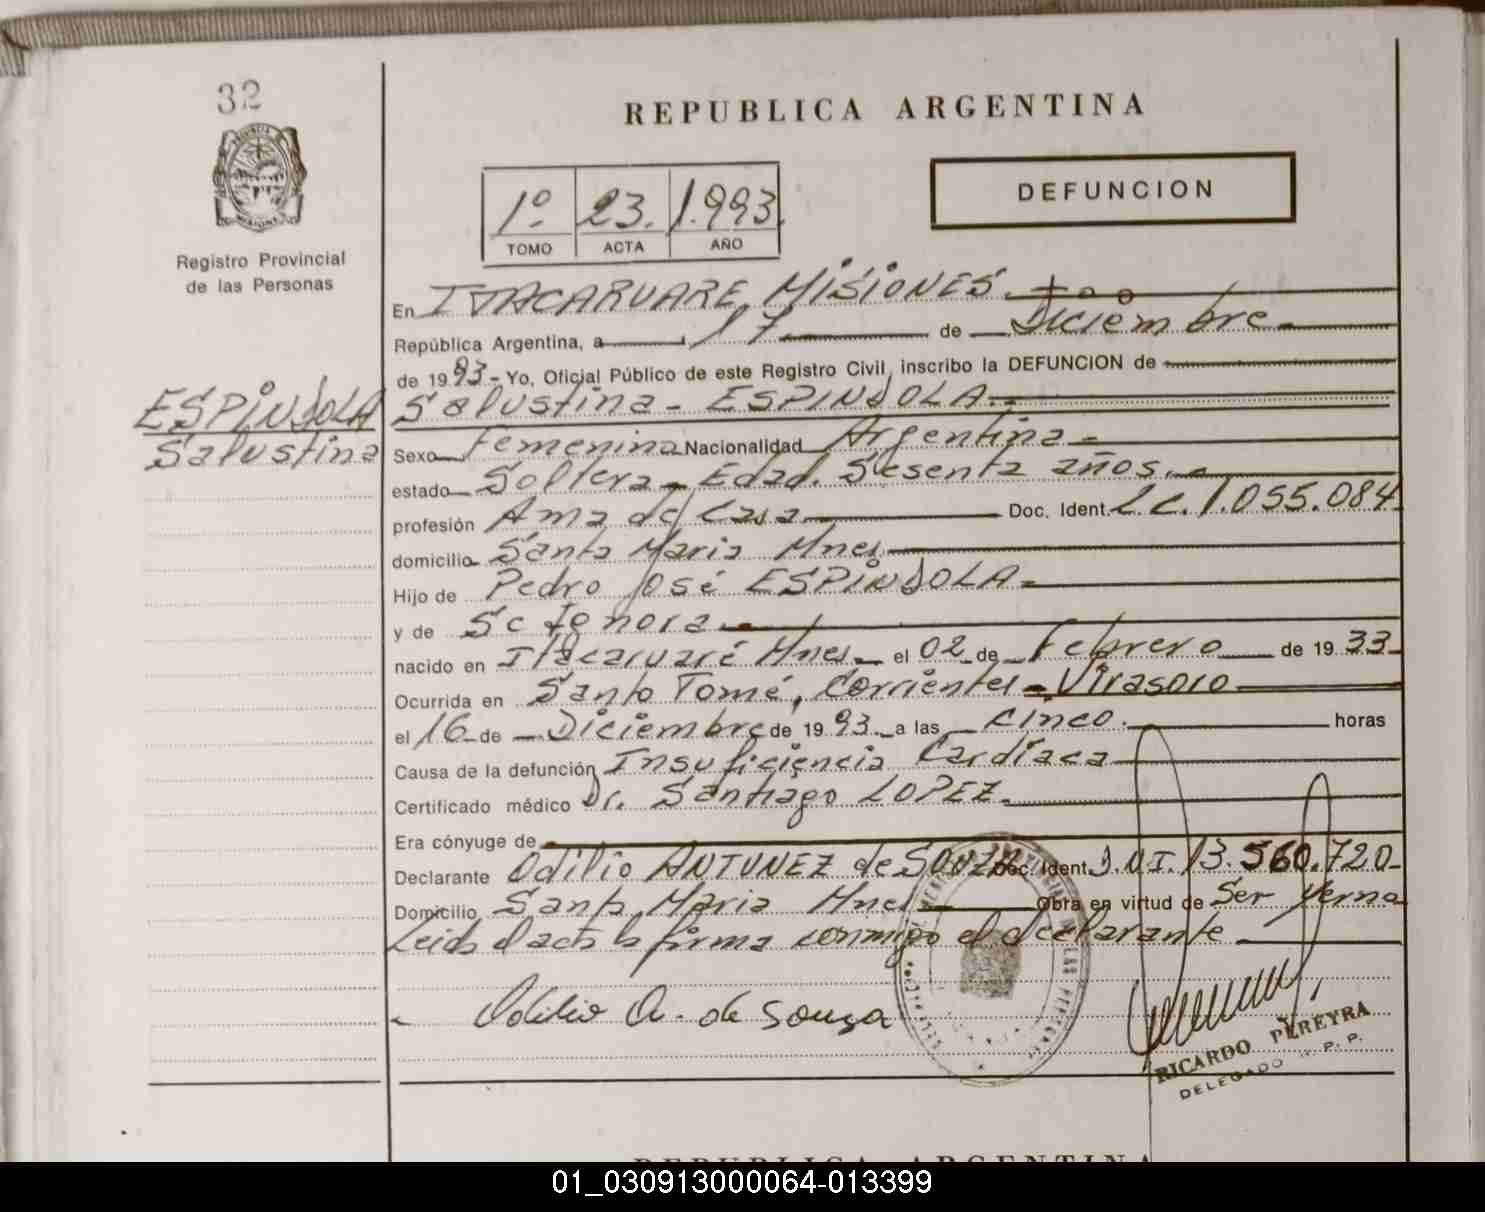 32
REPUBLICA ARGENTINA
1º 23. 1.993.
TOMO ACTA AÑO
DEFUNCION
Registro Provincial
de las Personas
En ITACARUARE, MISIONES
República Argentina, a 17 de Diciembre
de 1993 - Yo, Oficial Público de este Registro Civil, inscribo la DEFUNCION de
ESPINDOLA
Salustina
Salustina - ESPINDOLA
Sexo Femenina Nacionalidad Argentina
estado Soltera - Edad. Sesenta años.
profesión Ama de Casa Doc. Ident. L.C. 1.055.084
domicilio Santa Maria Mnes
Hijo de Pedro José ESPINDOLA
y de Se Ignora
nacido en Itacaruaré Mnes el 02 de Febrero de 1933
Ocurrida en Santo Tomé, Corrientes - Virasoro
el 16 de Diciembre de 1993. a las Cinco. horas
Causa de la defunción Insuficiencia Cardíaca
Certificado médico Dr. Santiago LOPEZ
Era cónyuge de
Declarante Odilio ANTUNEZ de SOUZA Doc. Ident. D.N.I. 13.560.720
Domicilio Santa Maria Mnes Obra en virtud de Ser Yerno
Leida el acta la firma conmigo el declarante
Odilio A. de Souza
RICARDO PEREYRA
DELEGADO R. P. P.
REPUBLICA ARGENTINA
01_030913000064-013399